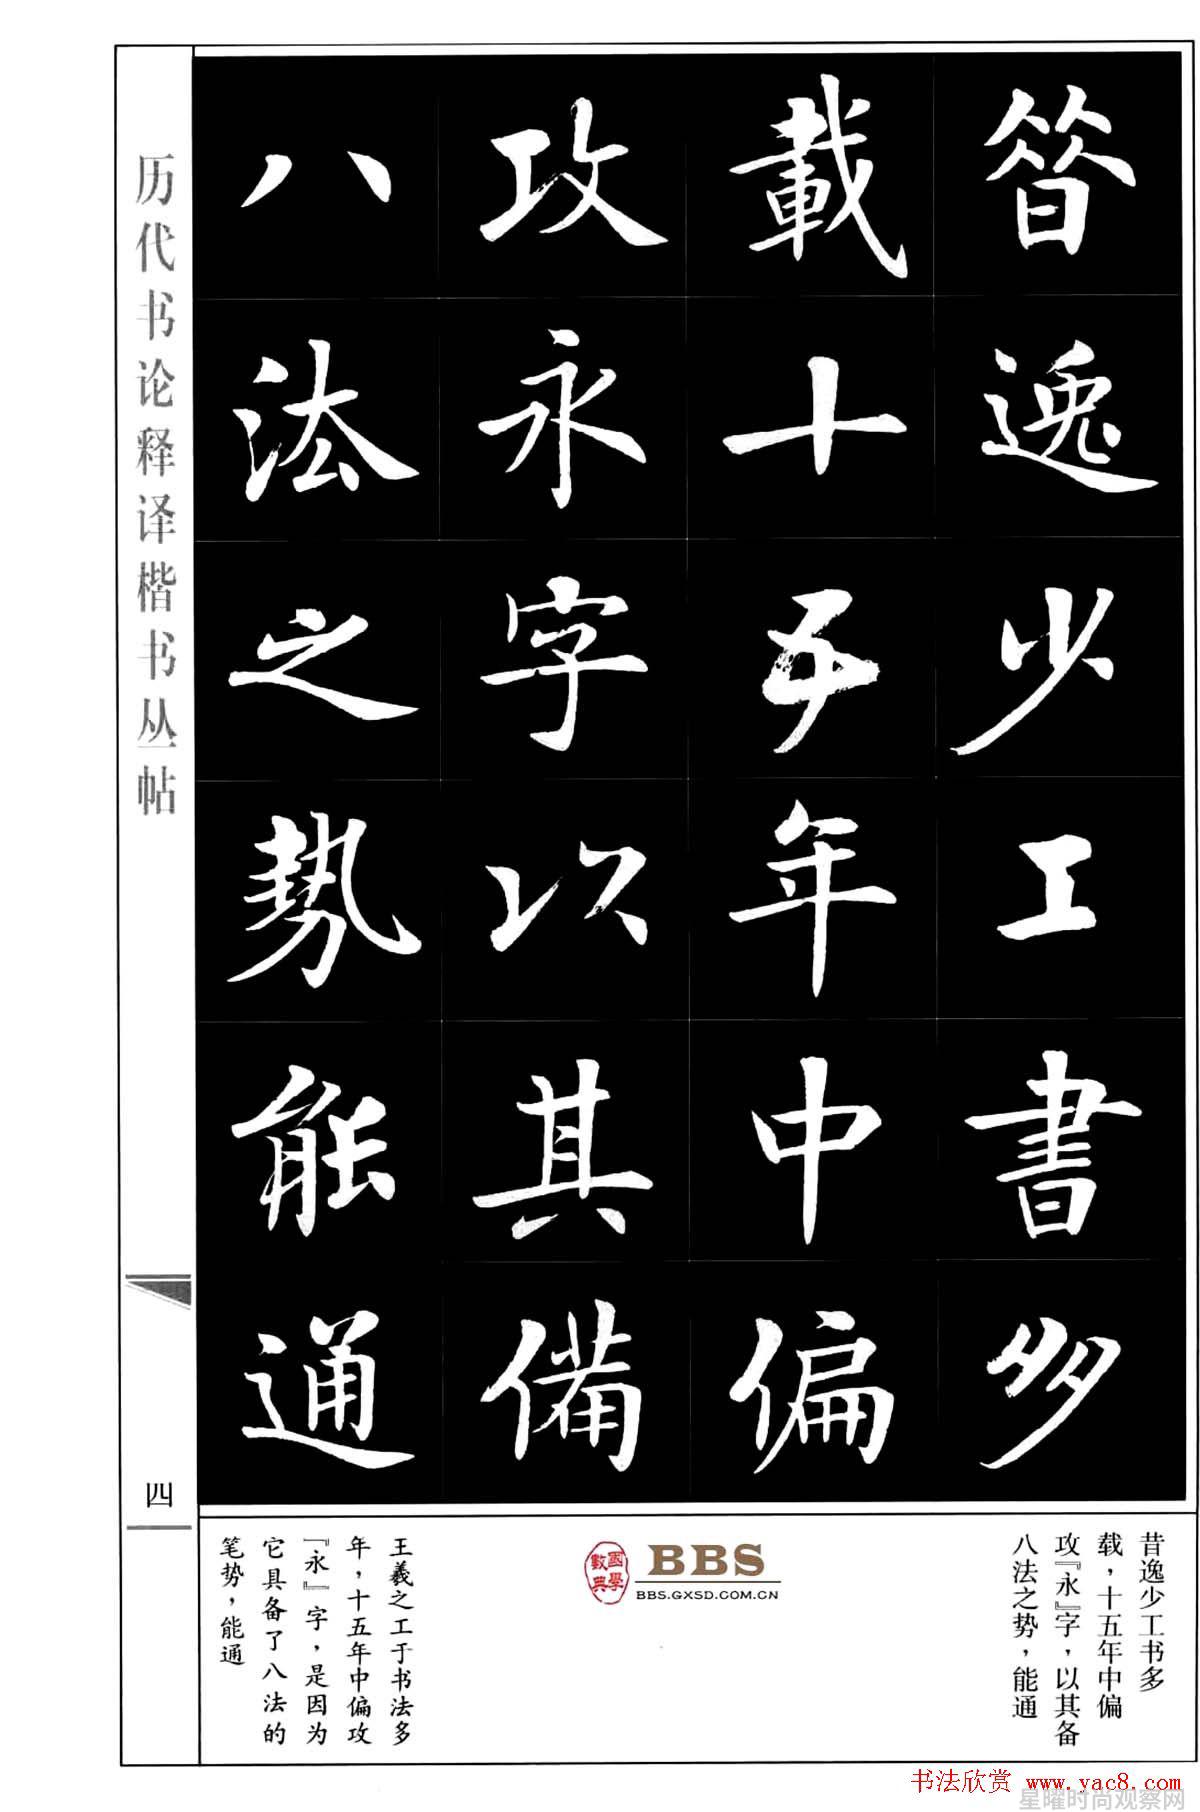 昝逸少工書多
載十五年中偏
攻永字以其備
八法之勢能通
历代书论释译楷书丛帖
四
昔逸少工书多
载，十五年中偏
攻『永』字，以其备
八法之势，能通
國學數典
BBS
BBS.GXSD.COM.CN
王羲之工于书法多
年，十五年中偏攻
『永』字，是因为
它具备了八法的
笔势，能通
书法欣赏 www.yac8.com
星曜时尚观察网